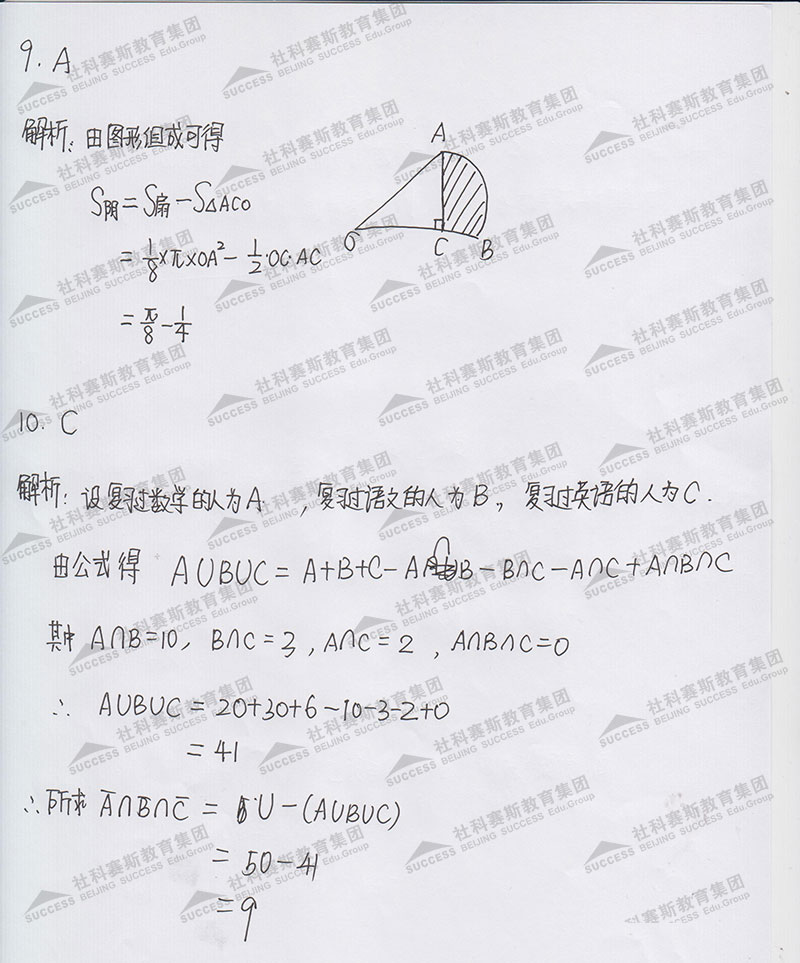 9. A
解析: 由图形组成可得
S阴 = S扇 - S△ACO
= 1/8 × π × OA² - 1/2 · OC · AC
= π/8 - 1/4
A
O
C
B
10. C
解析: 设复习过数学的人为A, 复习过语文的人为B, 复习过英语的人为C.
由公式得 A∪B∪C = A+B+C - A∩B - B∩C - A∩C + A∩B∩C
其中 A∩B=10, B∩C=3, A∩C=2, A∩B∩C=0
∴ A∪B∪C = 20+30+6-10-3-2+0
= 41
∴ 所求 A̅∩B̅∩C̅ = U - (A∪B∪C)
= 50-41
= 9
社科赛斯教育集团
SUCCESS BEIJING SUCCESS Edu.Group